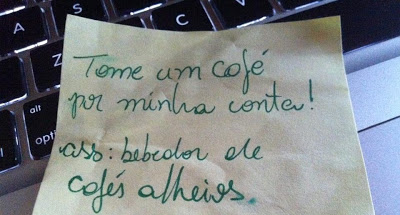 Tome um café
por minha conta!
ass: bebedor de
cafés alheios.
A
S
Z
alt
option